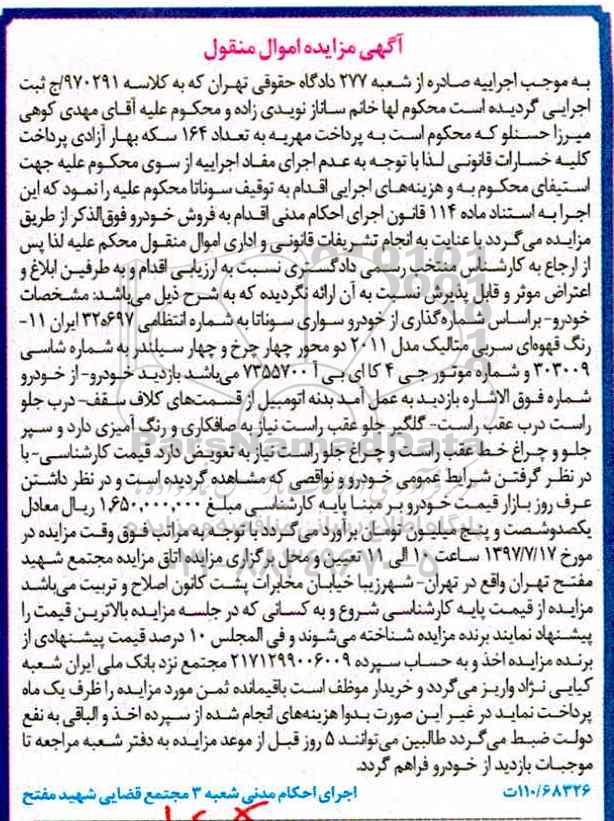 آگهی مزایده اموال منقول
به موجب اجراییه صادره از شعبه ۲۷۷ دادگاه حقوقی تهران که به کلاسه ۹۷۰۲۹۱/ج ثبت
اجرایی گردیده است محکوم لها خانم ساناز نویدی زاده و محکوم علیه آقای مهدی کوهی
میرزا حسنلو که محکوم است به پرداخت مهریه به تعداد ۱۶۴ سکه بهار آزادی پرداخت
کلیه خسارات قانونی لذا با توجه به عدم اجرای مفاد اجراییه از سوی محکوم علیه جهت
استیفای محکوم به و هزینه‌های اجرایی اقدام به توقیف سوناتا محکوم علیه را نمود که این
اجرا به استناد ماده ۱۱۴ قانون اجرای احکام مدنی اقدام به فروش خودرو فوق‌الذکر از طریق
مزایده می‌گردد با عنایت به انجام تشریفات قانونی و اداری اموال منقول محکم علیه لذا پس
از ارجاع به کارشناس منتخب رسمی دادگستری نسبت به ارزیابی اقدام و به طرفین ابلاغ و
اعتراض موثر و قابل پذیرش نسبت به آن ارائه نگردیده که به شرح ذیل می‌باشد: مشخصات
خودرو- براساس شماره‌گذاری از خودرو سواری سوناتا به شماره انتظامی ۶۹۷ه۳۲ ایران ۱۱-
رنگ قهوه‌ای سربی متالیک مدل ۲۰۱۱ دو محور چهار چرخ و چهار سیلندر به شماره شاسی
۳۰۳۰۰۹ و شماره موتور جی ۴ کا ای بی آ ۷۳۵۵۷۰۰ می‌باشد بازدید خودرو- از خودرو
شماره فوق الاشاره بازدید به عمل آمد بدنه اتومبیل از قسمت‌های کلاف سقف- درب جلو
راست درب عقب راست- گلگیر جلو عقب راست نیاز به صافکاری و رنگ آمیزی دارد و سپر
جلو و چراغ خط عقب راست و چراغ جلو راست نیاز به تعویض دارد. قیمت کارشناسی- با
در نظر گرفتن شرایط عمومی خودرو و نواقصی که مشاهده گردیده است و در نظر داشتن
عرف روز بازار قیمت خودرو بر مبنا پایه کارشناسی مبلغ ۱,۶۵۰,۰۰۰,۰۰۰ ریال معادل
یکصدوشصت و پنج میلیون تومان برآورد می‌گردد با توجه به مراتب فوق وقت مزایده در
مورخ ۱۳۹۷/۷/۱۷ ساعت ۱۰ الی ۱۱ تعیین و محل برگزاری مزایده اتاق مزایده مجتمع شهید
مفتح تهران واقع در تهران- شهرزیبا خیابان مخابرات پشت کانون اصلاح و تربیت می‌باشد
مزایده از قیمت پایه کارشناسی شروع و به کسانی که در جلسه مزایده بالاترین قیمت را
پیشنهاد نمایند برنده مزایده شناخته می‌شوند و فی المجلس ۱۰ درصد قیمت پیشنهادی از
برنده مزایده اخذ و به حساب سپرده ۲۱۷۱۲۹۹۰۰۶۰۰۹ مجتمع نزد بانک ملی ایران شعبه
کیایی نژاد واریز می‌گردد و خریدار موظف است باقیمانده ثمن مورد مزایده را ظرف یک ماه
پرداخت نماید در غیر این صورت بدوا هزینه‌های انجام شده از سپرده اخذ و الباقی به نفع
دولت ضبط می‌گردد طالبین می‌توانند ۵ روز قبل از موعد مزایده به دفتر شعبه مراجعه تا
موجبات بازدید از خودرو فراهم گردد.
۱۱۰/۶۸۳۲۶ت اجرای احکام مدنی شعبه ۳ مجتمع قضایی شهید مفتح
ParsNamadData